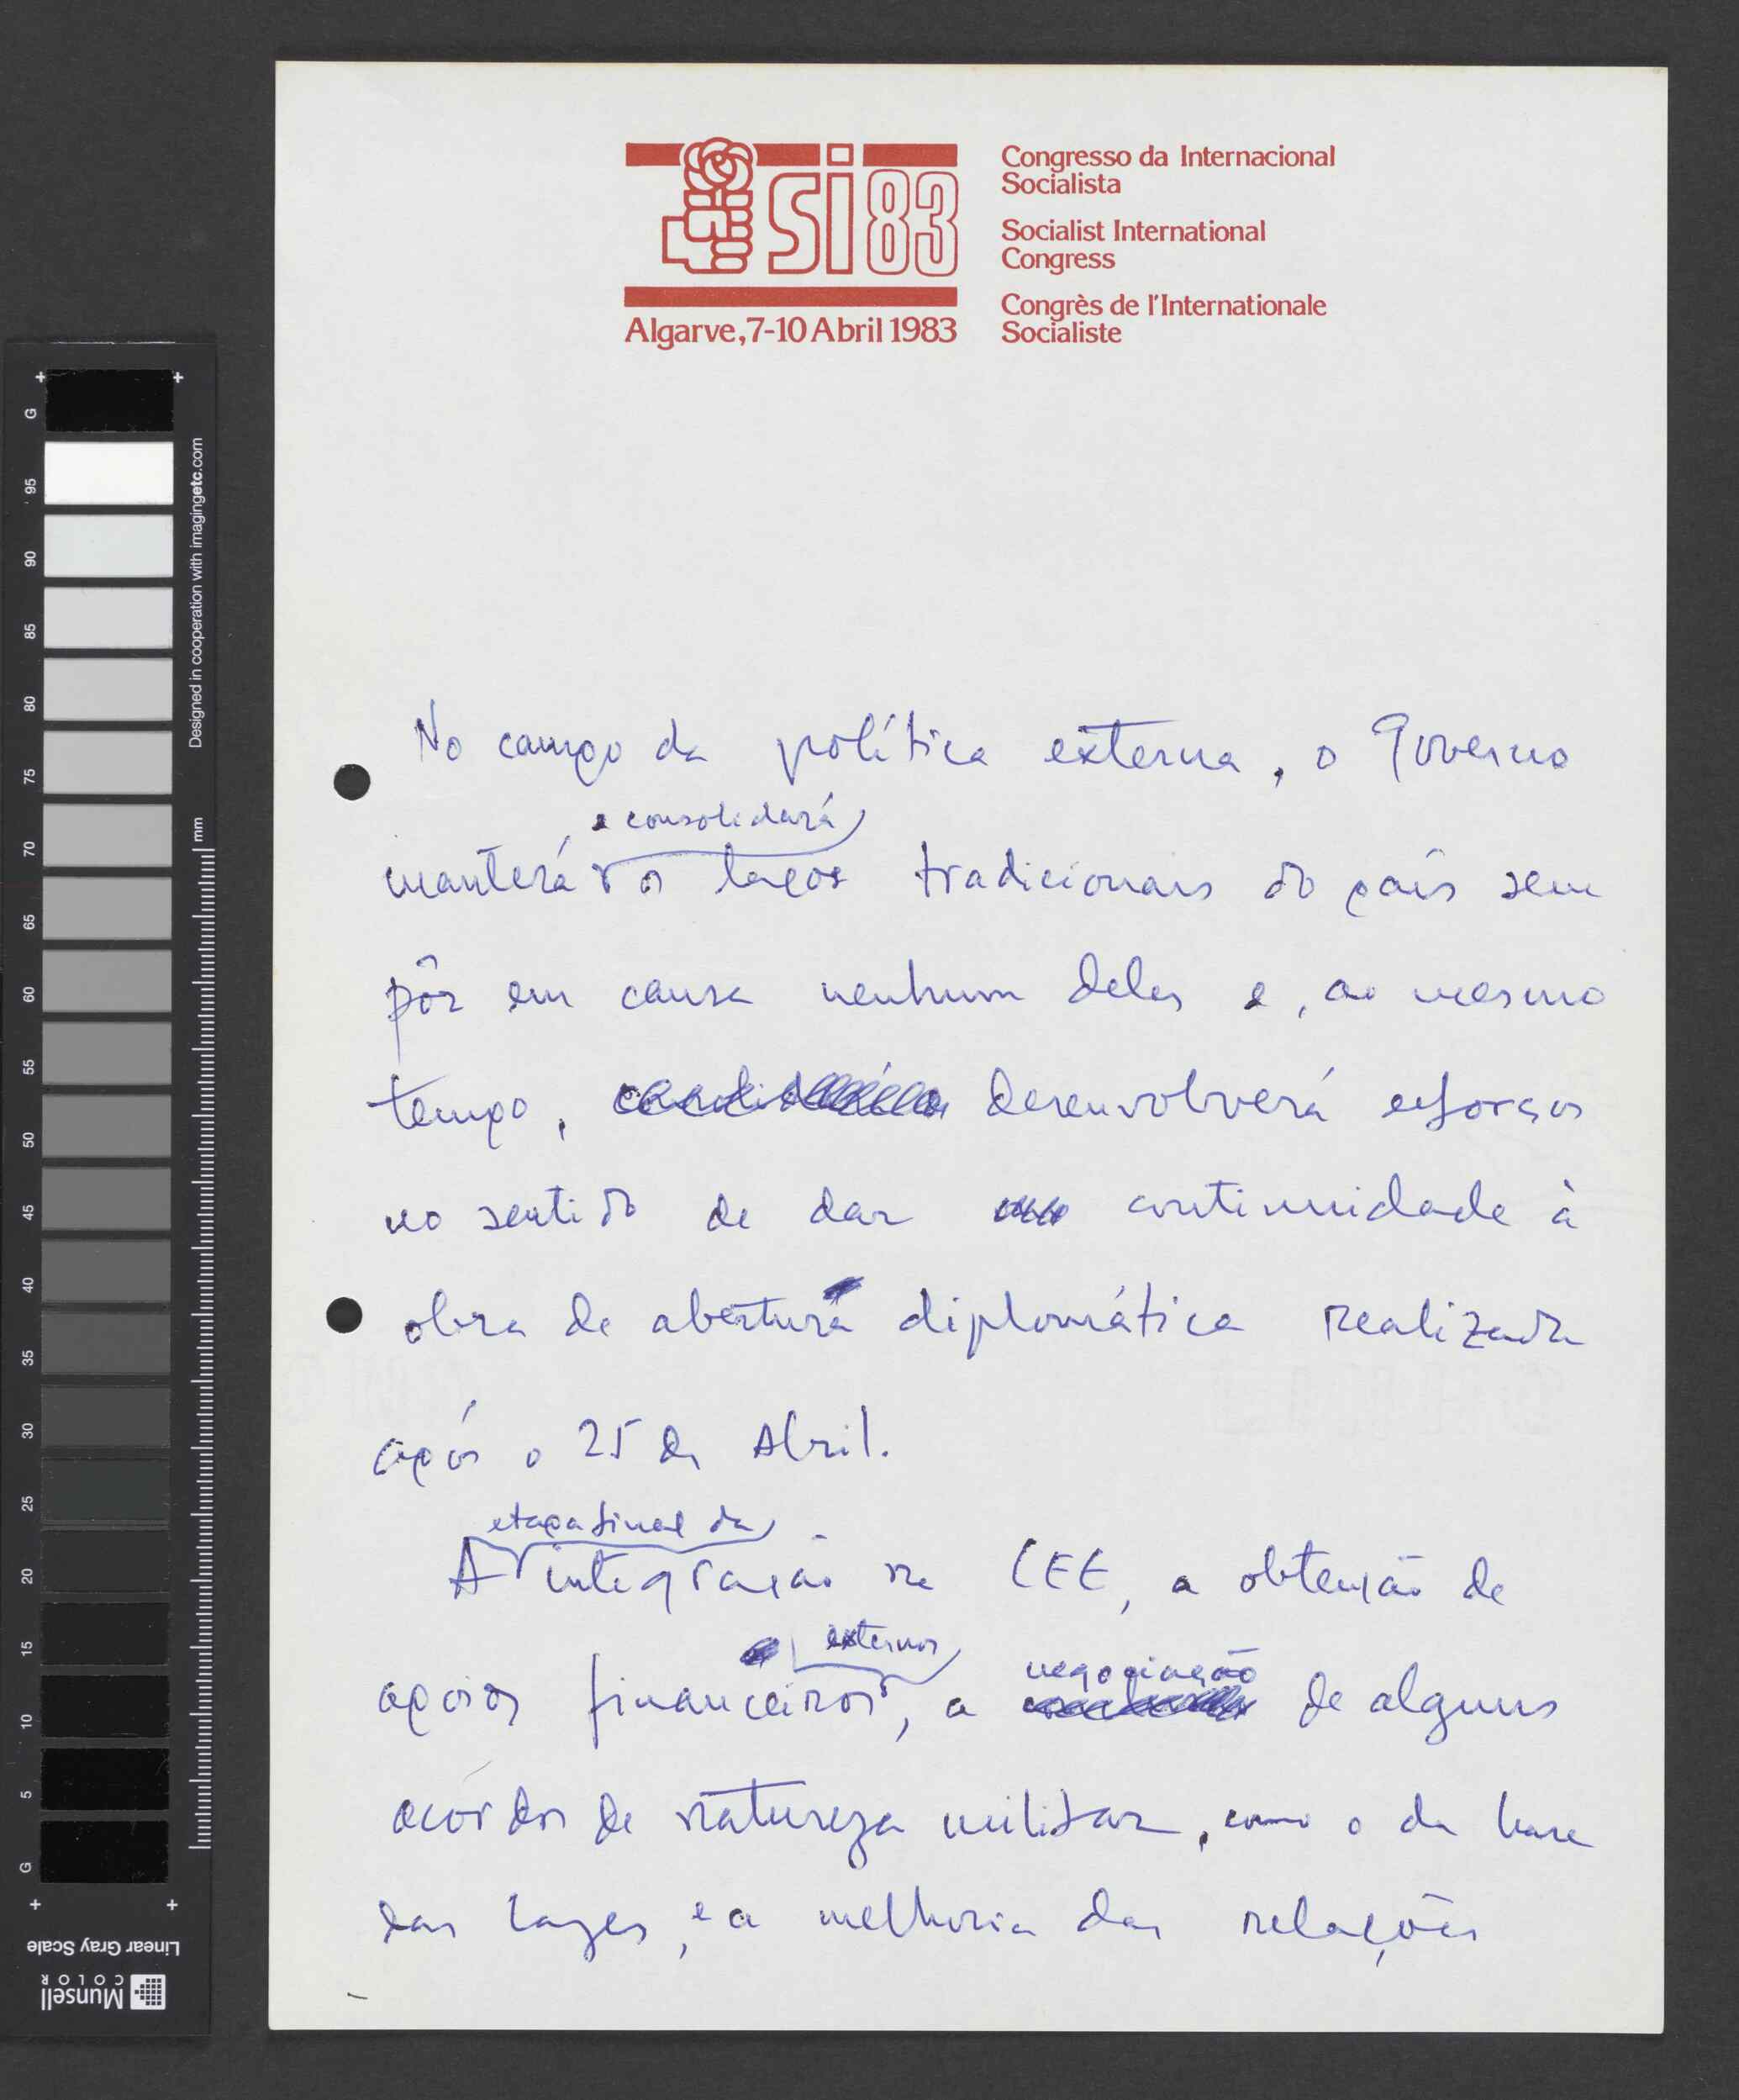 si 83
Algarve, 7-10 Abril 1983
Congresso da Internacional
Socialista
Socialist International
Congress
Congrès de l'Internationale
Socialiste
No campo da política externa, o Governo
e consolidará
manterá os laços tradicionais do país sem
pôr em causa nenhum deles e, ao mesmo
tempo, desenvolverá esforços
no sentido de dar continuidade à
obra de abertura diplomática realizada
após o 25 de Abril.
etapa final da
A integração na CEE, a obtenção de
externos
negociação
apoios financeiros, a de alguns
acordos de natureza militar, como o da base
das Lages, e a melhoria das relações
G 95 90 85 80 75 70 65 60 55 50 45 40 35 30 25 20 15 10 5 G
Designed in cooperation with imagingetc.com
mm
Linear Gray Scale
Munsell
COLOR